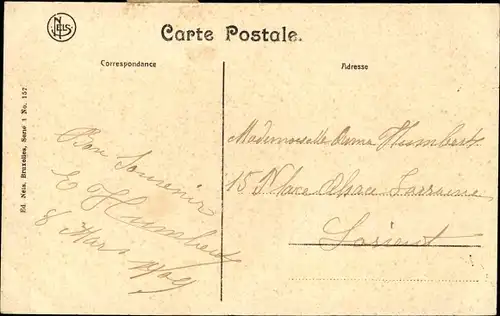 NELS
Carte Postale.
Correspondance
Adresse
Ed. Nels, Bruxelles, Serie 1 No. 157
Bon Souvenir
E Humbert
8 Mars 1909
Mademoiselle Humbert
15 Place Alsace Lorraine
Lorient